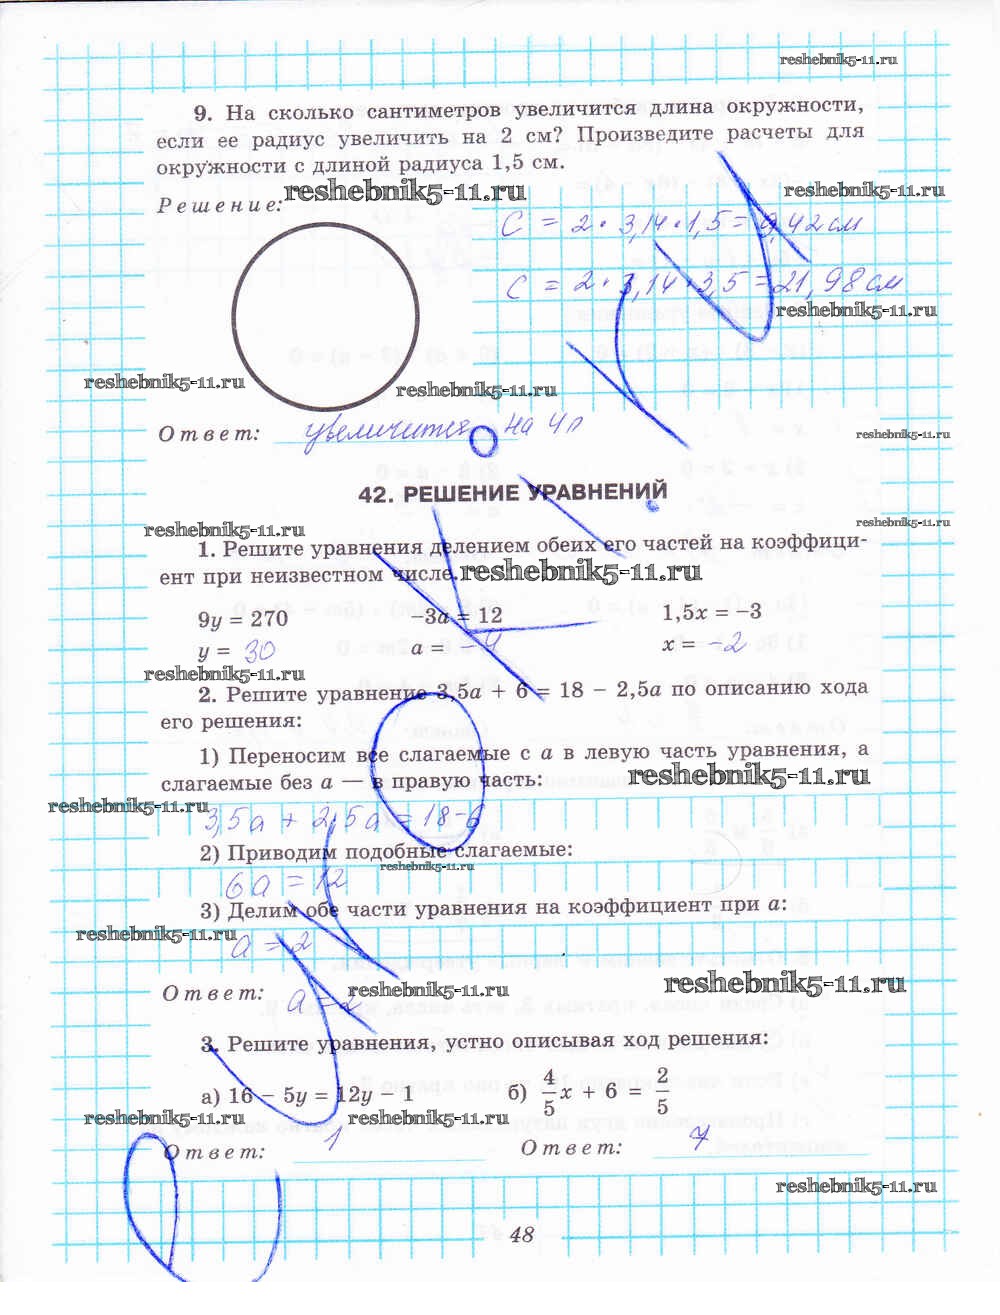 reshebnik5-11.ru
9. На сколько сантиметров увеличится длина окружности,
если ее радиус увеличить на 2 см? Произведите расчеты для
окружности с длиной радиуса 1,5 см.
reshebnik5-11.ru
reshebnik5-11.ru
Решение:
C = 2 · 3,14 · 1,5 = 9,42 см
C = 2 · 3,14 · 3,5 = 21,98 см
reshebnik5-11.ru
reshebnik5-11.ru
reshebnik5-11.ru
Ответ: увеличится на 4п
reshebnik5-11.ru
42. РЕШЕНИЕ УРАВНЕНИЙ
reshebnik5-11.ru
reshebnik5-11.ru
1. Решите уравнения делением обеих его частей на коэффици-
ент при неизвестном числе.
reshebnik5-11.ru
9y = 270 −3a = 12 1,5x = −3
y = 30 a = −4 x = −2
reshebnik5-11.ru
2. Решите уравнение 3,5a + 6 = 18 − 2,5a по описанию хода
его решения:
1) Переносим все слагаемые с a в левую часть уравнения, а
слагаемые без a — в правую часть:
reshebnik5-11.ru
reshebnik5-11.ru
3,5a + 2,5a = 18-6
2) Приводим подобные слагаемые:
reshebnik5-11.ru
6a = 12
3) Делим обе части уравнения на коэффициент при a:
reshebnik5-11.ru
a = 2
Ответ: a = 2
reshebnik5-11.ru
reshebnik5-11.ru
3. Решите уравнения, устно описывая ход решения:
а) 16 − 5y = 12y − 1 б) 4/5 x + 6 = 2/5
reshebnik5-11.ru
reshebnik5-11.ru
Ответ: 1 Ответ: 7
reshebnik5-11.ru
48